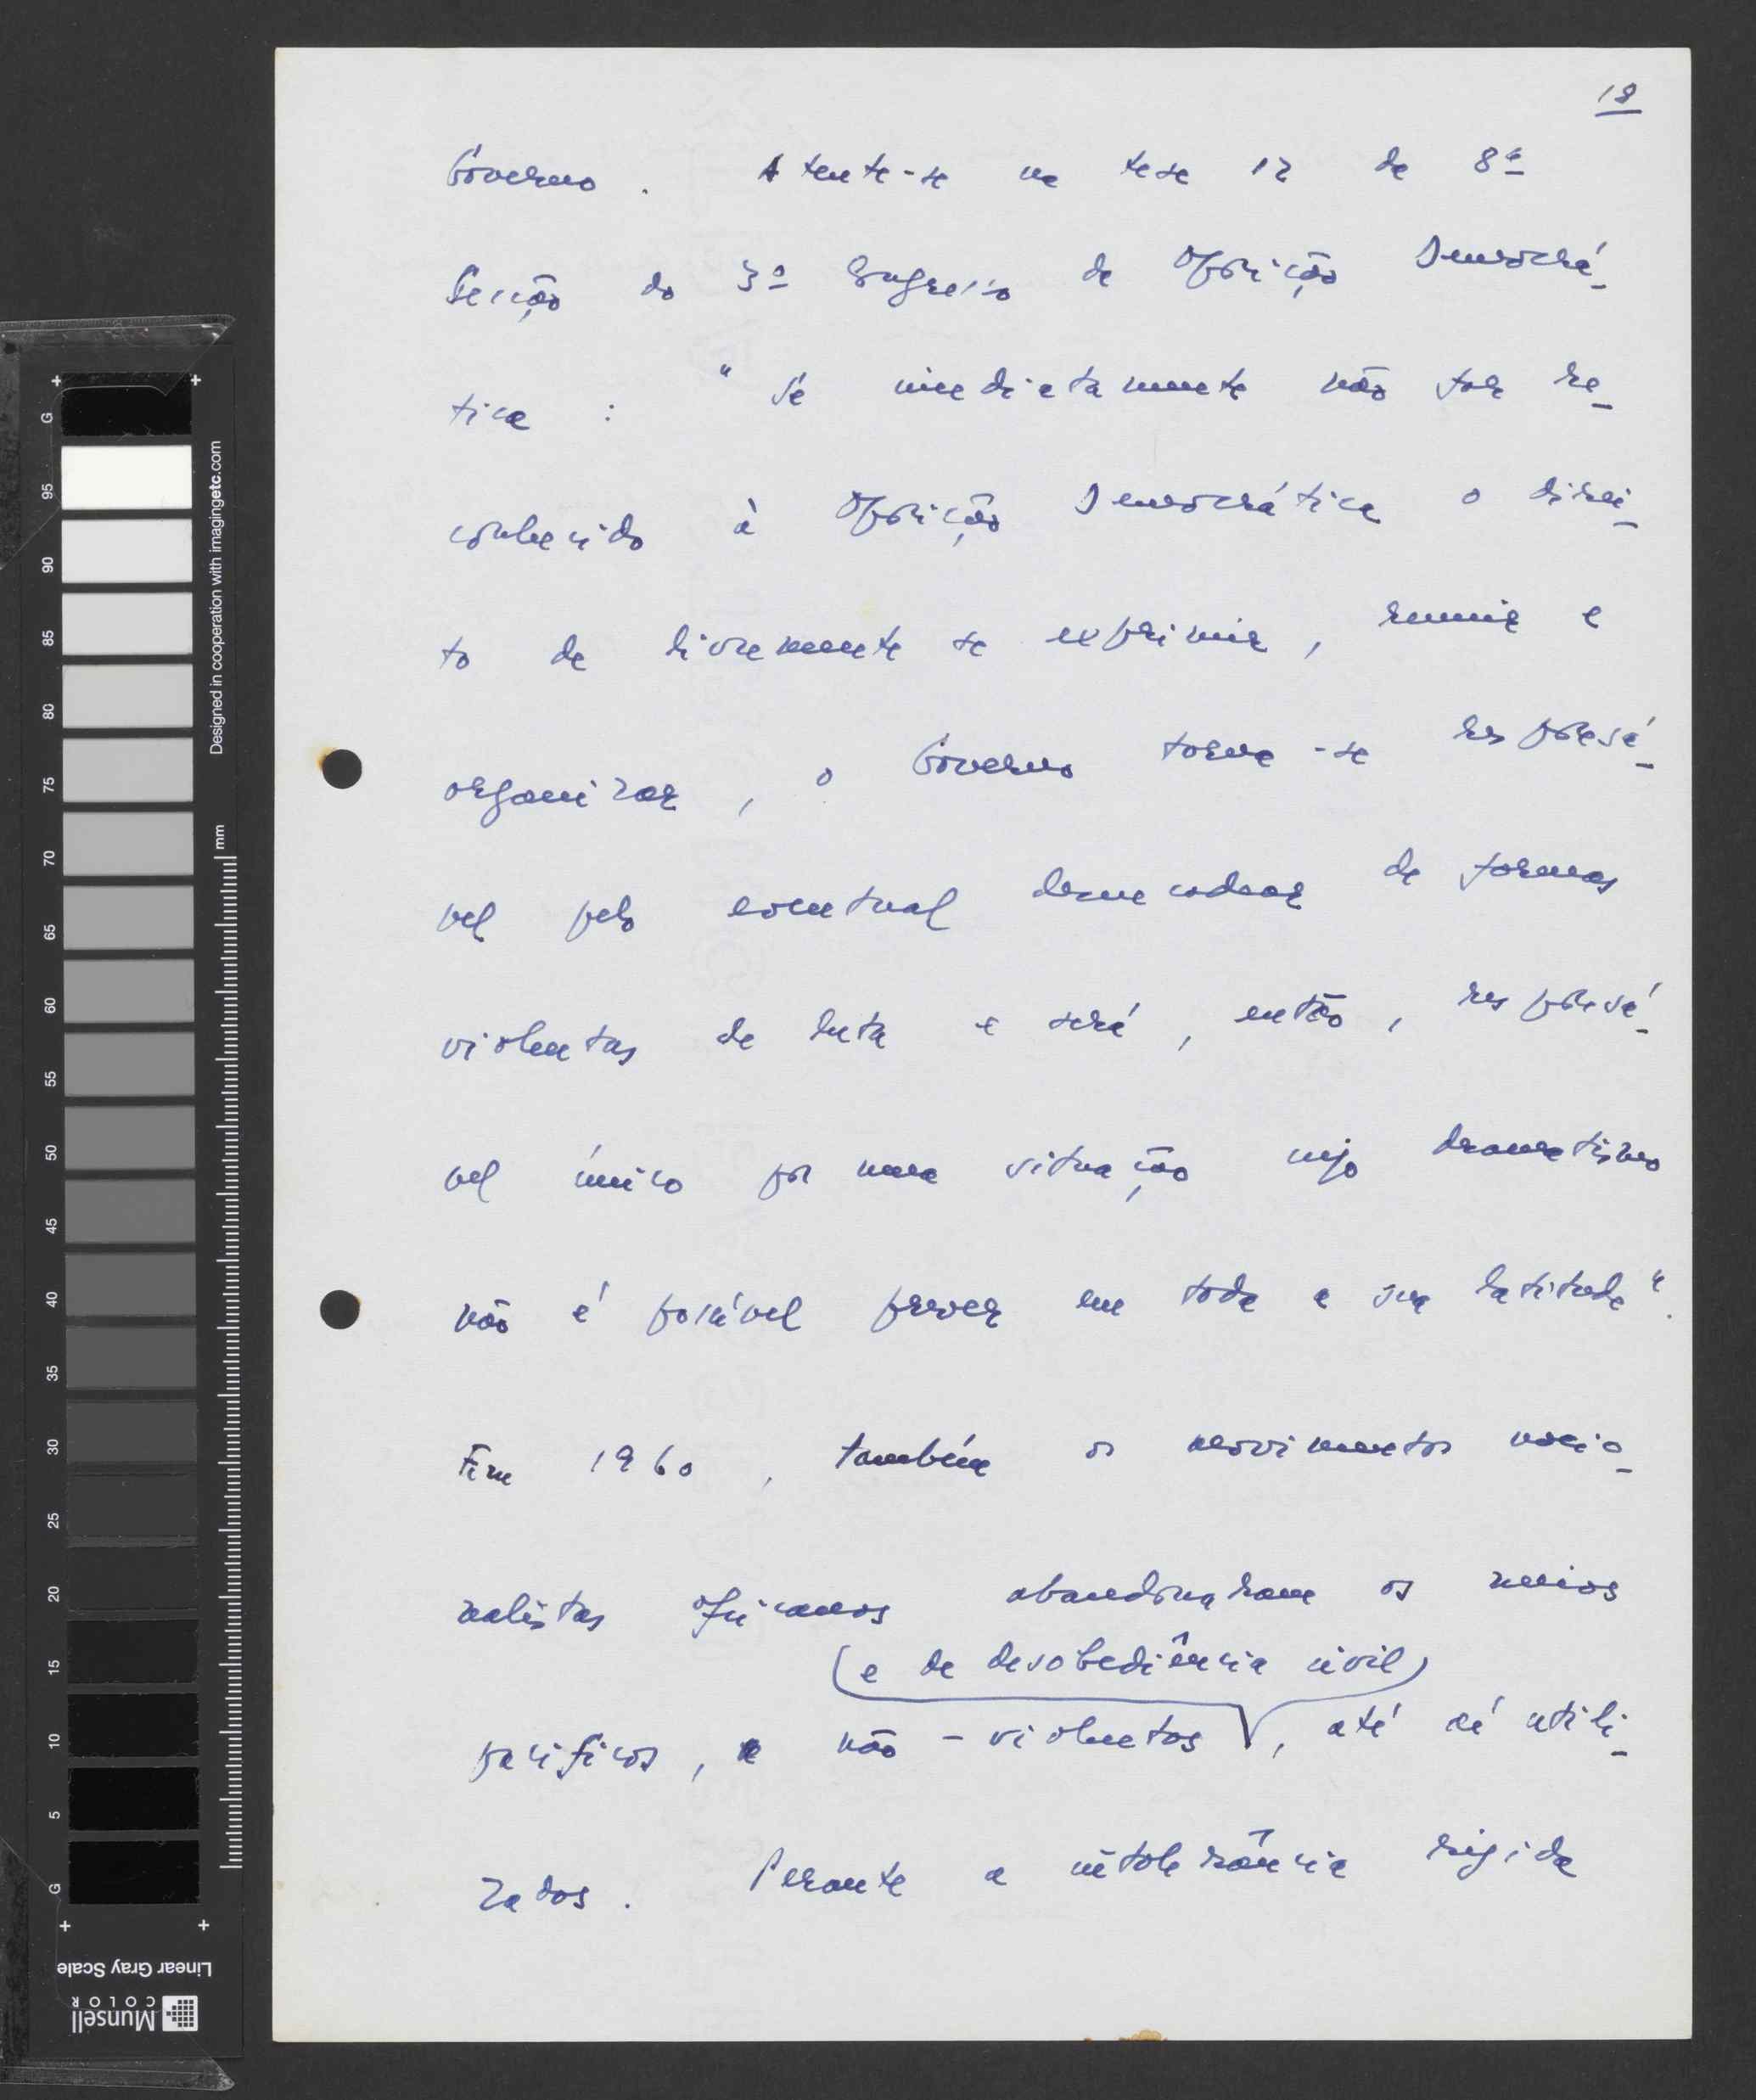 18
Governo. Atente-se na tese 12 da 8ª
Secção do 3º Congresso da Oposição Democrá-
tica : "Se imediatamente não for re-
conhecido à Oposição Democrática o direi-
to de livremente se exprimir, reunir e
organizar, o Governo torna-se responsá-
vel pelo eventual desencadear de formas
violentas de luta e será, então, responsá-
vel único por uma situação cujo dramatismo
não é possível prever em toda a sua latitude".
Em 1960, também os movimentos nacio-
nalistas africanos abandonaram os meios
(e de desobediência civil)
pacíficos, e não-violentos, até aí utili-
zados. Perante a intolerância rígida
G 95 90 85 80 75 70 65 60 55 50 45 40 35 30 25 20 15 10 5 G
Designed in cooperation with imagingetc.com
mm
Linear Gray Scale
Munsell
COLOR